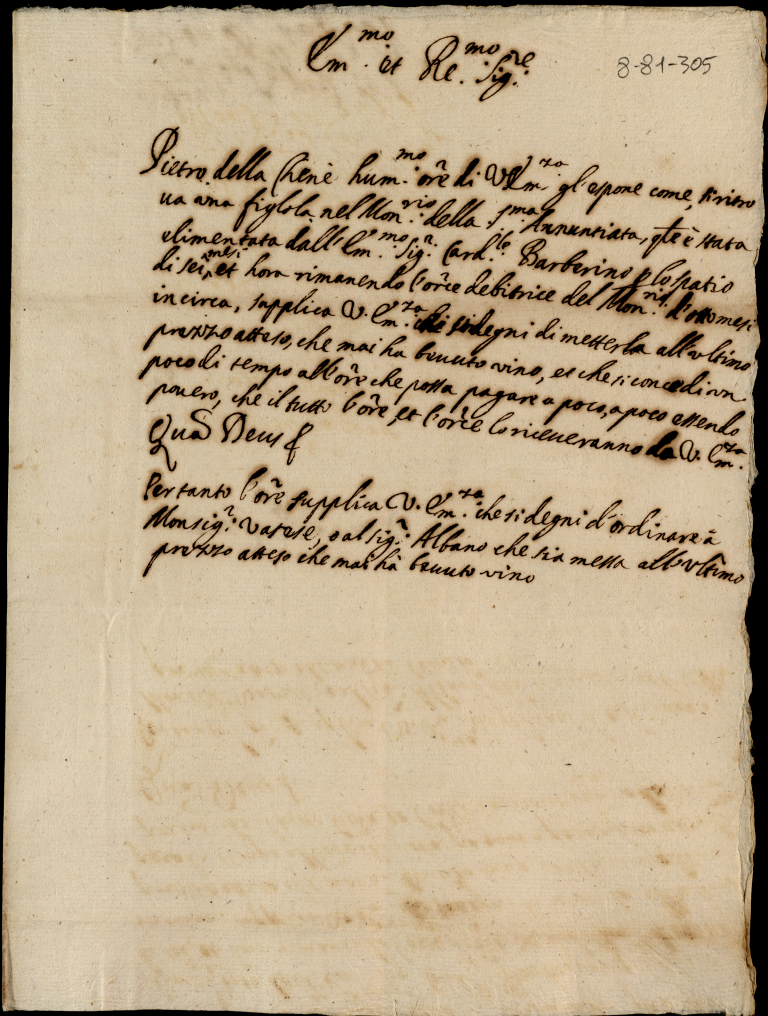 Em.mo et Re.mo Sig.re
8-81-305
Pietro della Chene hum.mo ore di V. Em.za gl'espone come, si ritro
va una figlola nel Mon.rio della S.ma Annuntiata, qle è stata
elimentata dall'Em.mo Sig.r Card.le Barberino p lo spatio
di sei mesi et hora rimanendo l'orce debitrice del Mon.rio d'otto mesi
in circa, supplica V. Em.za che si degni di metterla all'ultimo
prezzo atteso, che mai ha beuuto vino, et che si conceda un
poco di tempo all'ore che possa pagare a poco, a poco essendo
pouero, che il tutto l'ore, et l'orce lo riceueranno da V. Em.za
Qua Deus
Pertanto l'ore supplica V. Em.za che si degni d'ordinare à
Monsig.r Varese, o al sig.r Albano che sia messa all'ultimo
prezzo atteso che mai hà beuuto vino